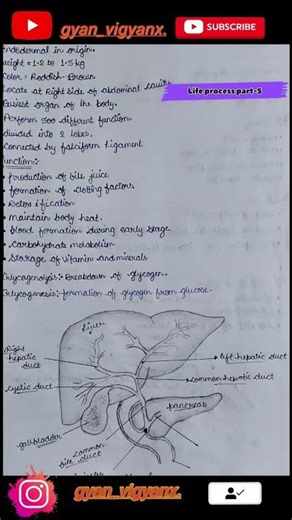 gyan_vigyanx.
SUBSCRIBE
Endodermal in origin.
weight = 1.2 to 1.5 kg
Color = Reddish-Brown
Locate at Right side of abdominal cavity
Life process part-5
Easiest organ of the body.
Perform 500 different function.
divided into 2 lobes.
Connected by falciform ligament
unction:-
• production of bile juice
• formation of clotting factors
• Detoxification
• Maintain body heat.
• blood formation during early stage
• Carbohydrate metabolism
• Storage of vitamin and minerals
Glycogenolysis:- Breakdown of glycogen.
Glycogenesis:- formation of glycogen from glucose.
liver
Right hepatic duct
left hepatic duct
cystic duct
common hepatic duct
pancreas
gallbladder
common bile duct
gyan_vigyanx.